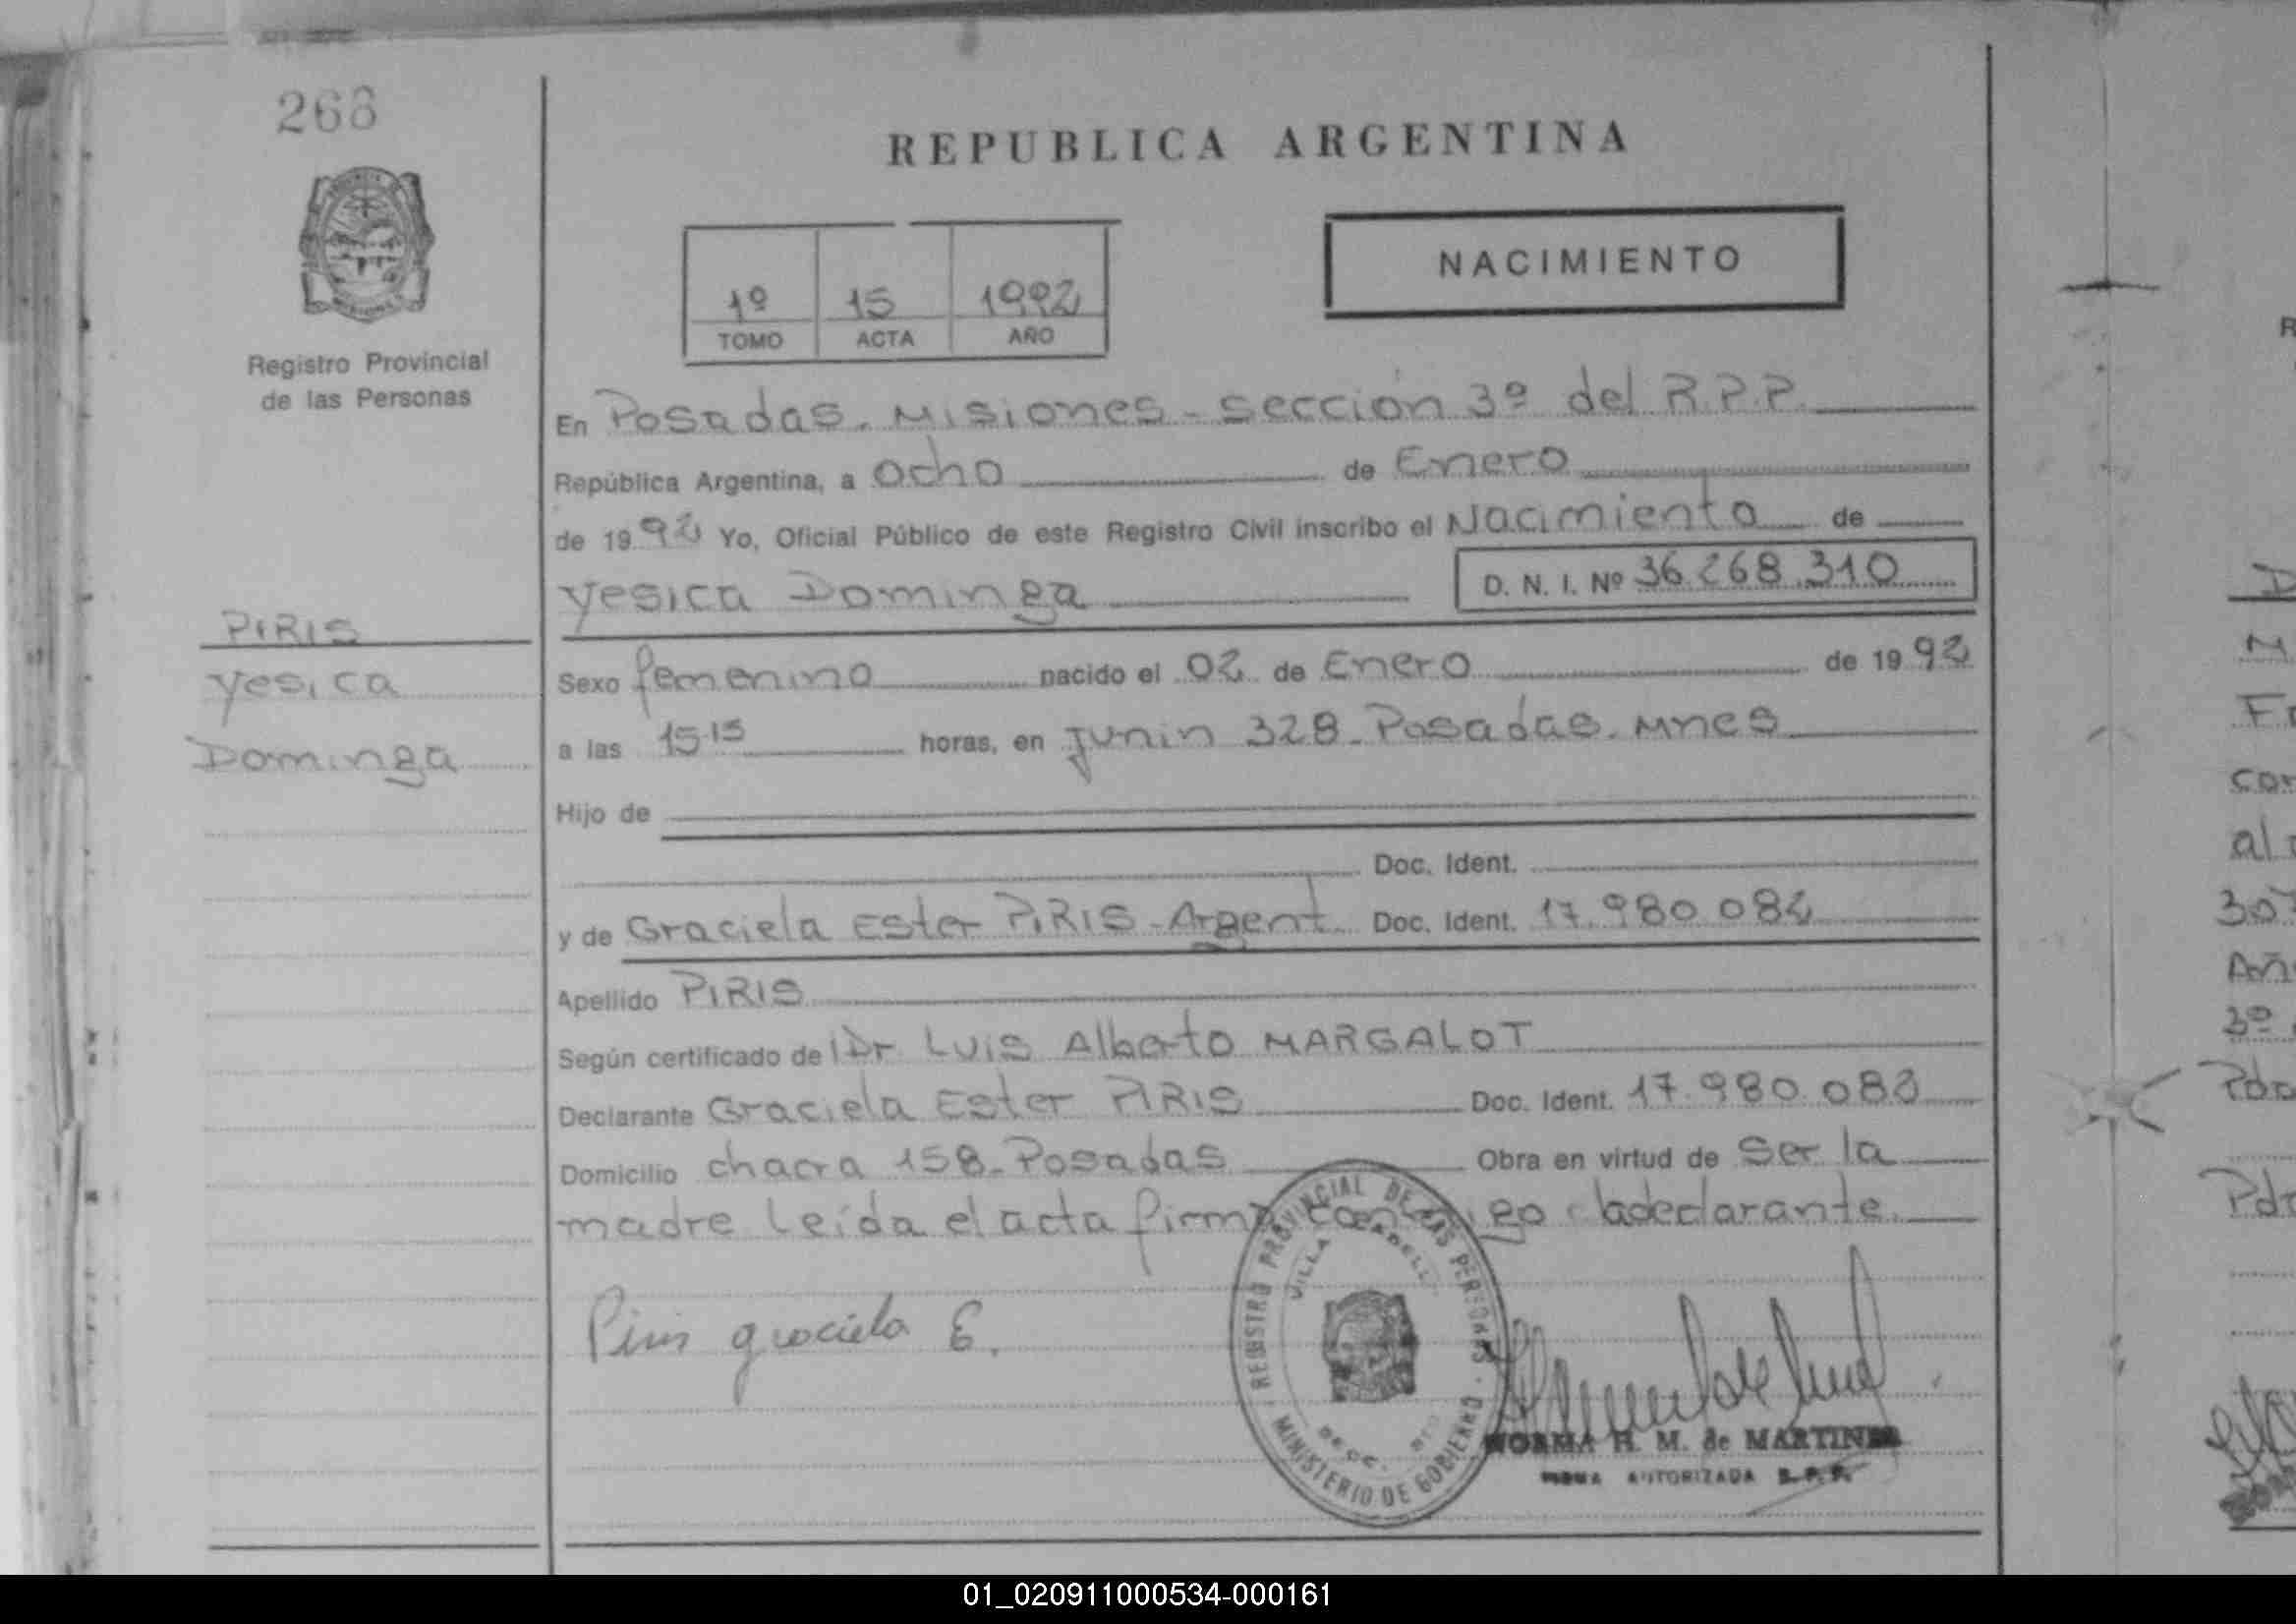 268
REPUBLICA ARGENTINA
NACIMIENTO
1º 15 1992
TOMO ACTA AÑO
Registro Provincial
de las Personas
En Posadas. Misiones - sección 3º del R.P.P.
República Argentina, a ocho de Enero
de 1992 Yo, Oficial Público de este Registro Civil inscribo el Nacimiento de
Yesica Dominga D. N. I. Nº 36.268.310
PIRIS
Yesica
Dominga
Sexo femenino nacido el 02 de Enero de 1992
a las 15 15 horas, en Junin 328 - Posadas. Mnes
Hijo de
Doc. Ident.
y de Graciela Ester PIRIS - Argent. Doc. Ident. 17.980.082
Apellido PIRIS
Según certificado de Dr Luis Alberto MARGALOT
Declarante Graciela Ester PIRIS Doc. Ident. 17.980.082
Domicilio chacra 158 - Posadas Obra en virtud de Ser la
madre Leída el acta firma go la declarante.
Piris graciela E.
REGISTRO PROVINCIAL DE LAS PERSONAS
VILLA
MINISTERIO DE GOBIERNO
NORMA H. M. de MARTINEZ
FIRMA AUTORIZADA R.P.P.
01_020911000534-000161